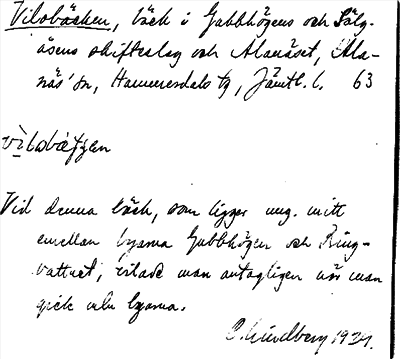 Vilobäcken, bäck i Gubbhögens och Sålg-
åsens skifteslag och Alanäset, Ala-
näs' sn, Hammerdals tg, Jämtl. l. 63
vìlobätjen
Vid denna bäck, som ligger ung. mitt
emellan byarna Gubbhögen och Ring-
vattnet, vilade man antagligen när man
gick mln byarna.
C. Lundberg 1939.